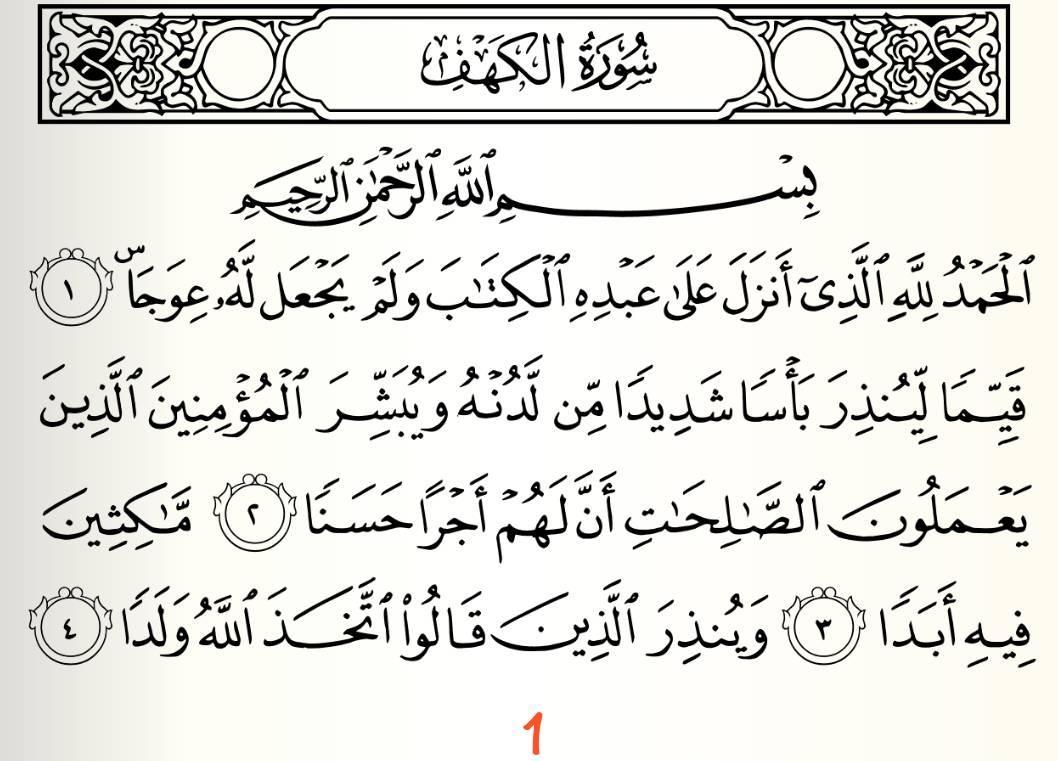 سُورَةُ الكَهْفِ
بِسْمِ ٱللَّهِ ٱلرَّحْمَٰنِ ٱلرَّحِيمِ
ٱلْحَمْدُ لِلَّهِ ٱلَّذِىٓ أَنزَلَ عَلَىٰ عَبْدِهِ ٱلْكِتَٰبَ وَلَمْ يَجْعَل لَّهُۥ عِوَجَاۜ ١
قَيِّمًا لِّيُنذِرَ بَأْسًا شَدِيدًا مِّن لَّدُنْهُ وَيُبَشِّرَ ٱلْمُؤْمِنِينَ ٱلَّذِينَ
يَعْمَلُونَ ٱلصَّٰلِحَٰتِ أَنَّ لَهُمْ أَجْرًا حَسَنًا ٢ مَّٰكِثِينَ
فِيهِ أَبَدًا ٣ وَيُنذِرَ ٱلَّذِينَ قَالُوا۟ ٱتَّخَذَ ٱللَّهُ وَلَدًا ٤
1